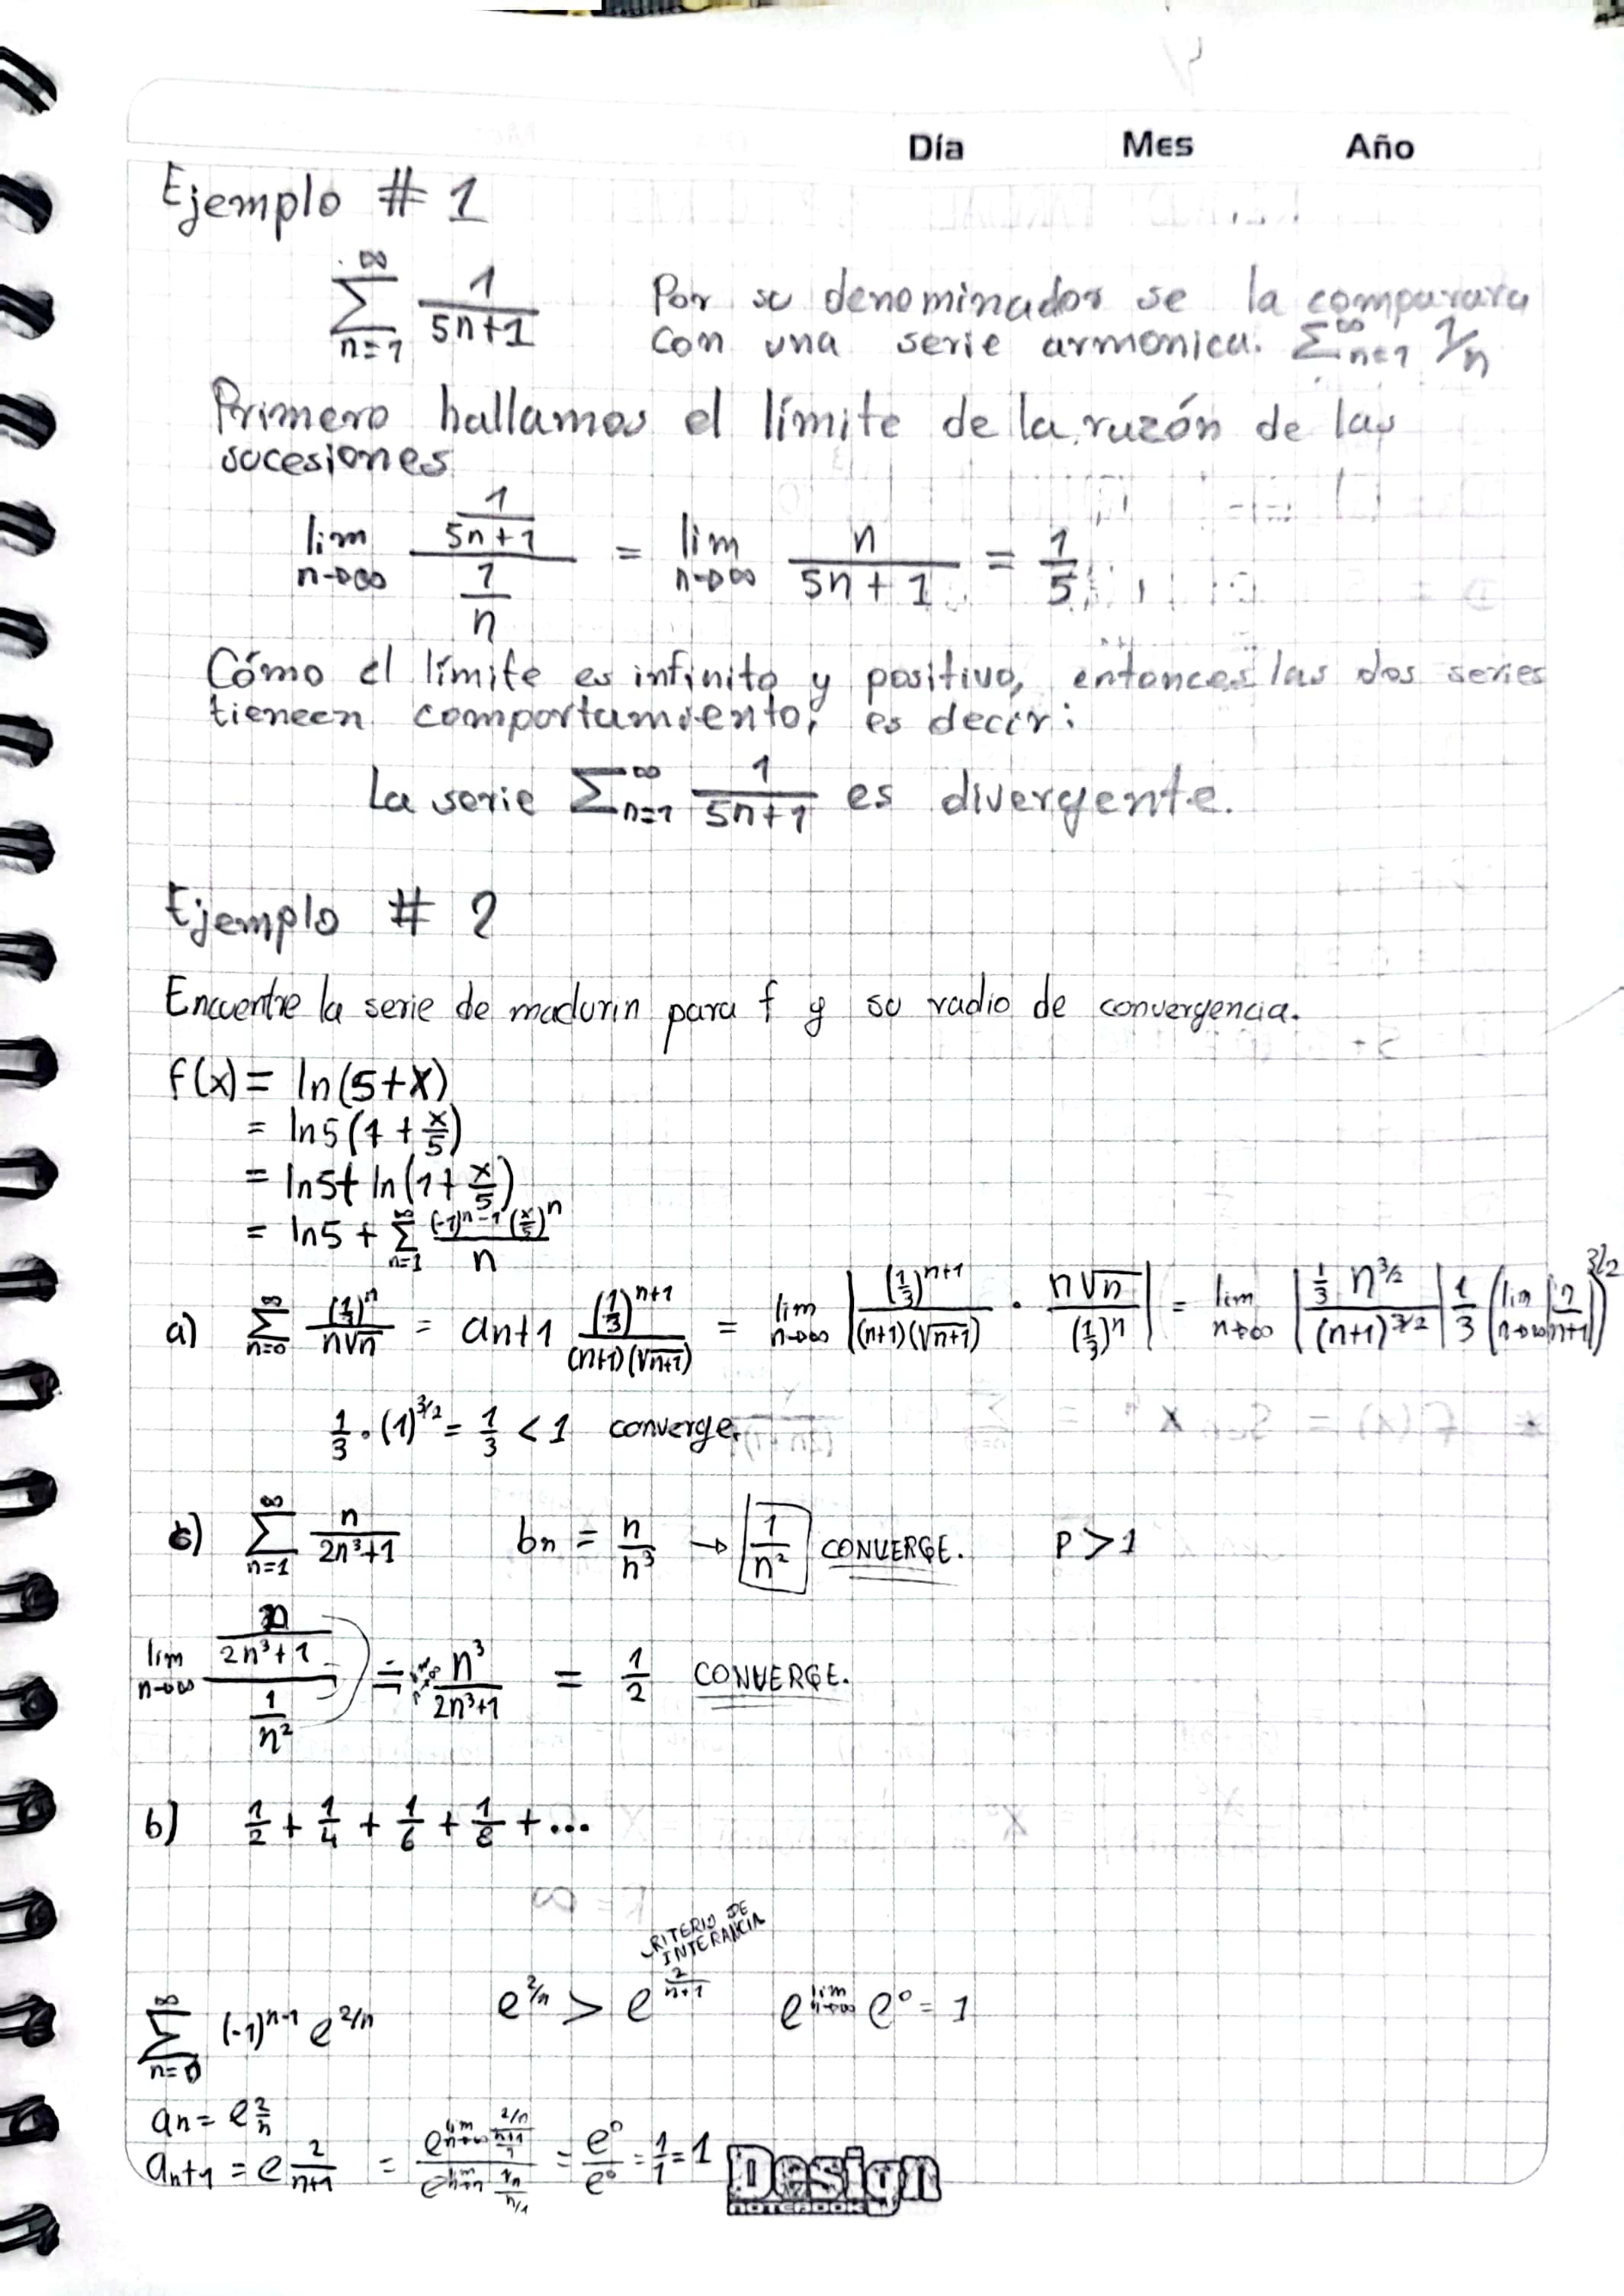 Día Mes Año
Ejemplo # 1
∑_{n=1}^{∞} 1/(5n+1) Por su denominador se la comparara
con una serie armonica. ∑_{n=1}^{∞} 1/n
Primero hallamos el límite de la razón de las
sucesiones
lim_{n→∞} (1/(5n+1))/(1/n) = lim_{n→∞} n/(5n+1) = 1/5
Cómo el límite es infinito y positivo, entonces las dos series
tieneen comportamiento, es decir:
La serie ∑_{n=1}^{∞} 1/(5n+1) es divergente.
Ejemplo # 2
Encuentre la serie de maclurin para f y su radio de convergencia.
f(x) = ln(5+x)
= ln5(1 + x/5)
= ln5 + ln(1 + x/5)
= ln5 + ∑_{n=1}^{∞} (-1)^{n-1} (x/5)^n / n
a) ∑_{n=0}^{∞} (1/3)^n/(n√n) = an+1 (1/3)^{n+1}/((n+1)(√(n+1))) = lim_{n→∞} |(1/3)^{n+1}/((n+1)(√(n+1))) · n√n/(1/3)^n| = lim_{n→∞} |(1/3 n^{3/2})/(n+1)^{3/2}| 1/3 (lim_{n→∞} |n/(n+1)|)^{3/2}
1/3 · (1)^{3/2} = 1/3 < 1 converge.
c) ∑_{n=1}^{∞} n/(2n³+1) bn = n/n³ → 1/n² CONVERGE. P > 1
lim_{n→∞} (n/(2n³+1))/(1/n²) = lim_{n→∞} n³/(2n³+1) = 1/2 CONVERGE.
b) 1/2 + 1/4 + 1/6 + 1/8 + ...
CRITERIO DE
INTERANCIA
∑_{n=0}^{∞} (-1)^{n-1} e^{2/n} e^{2/n} > e^{2/(n+1)} e^{lim n→∞} e⁰ = 1
an = e 2/n
an+1 = e 2/(n+1) = = e⁰/e⁰ = 1/1 = 1
Design
NOTEBOOK